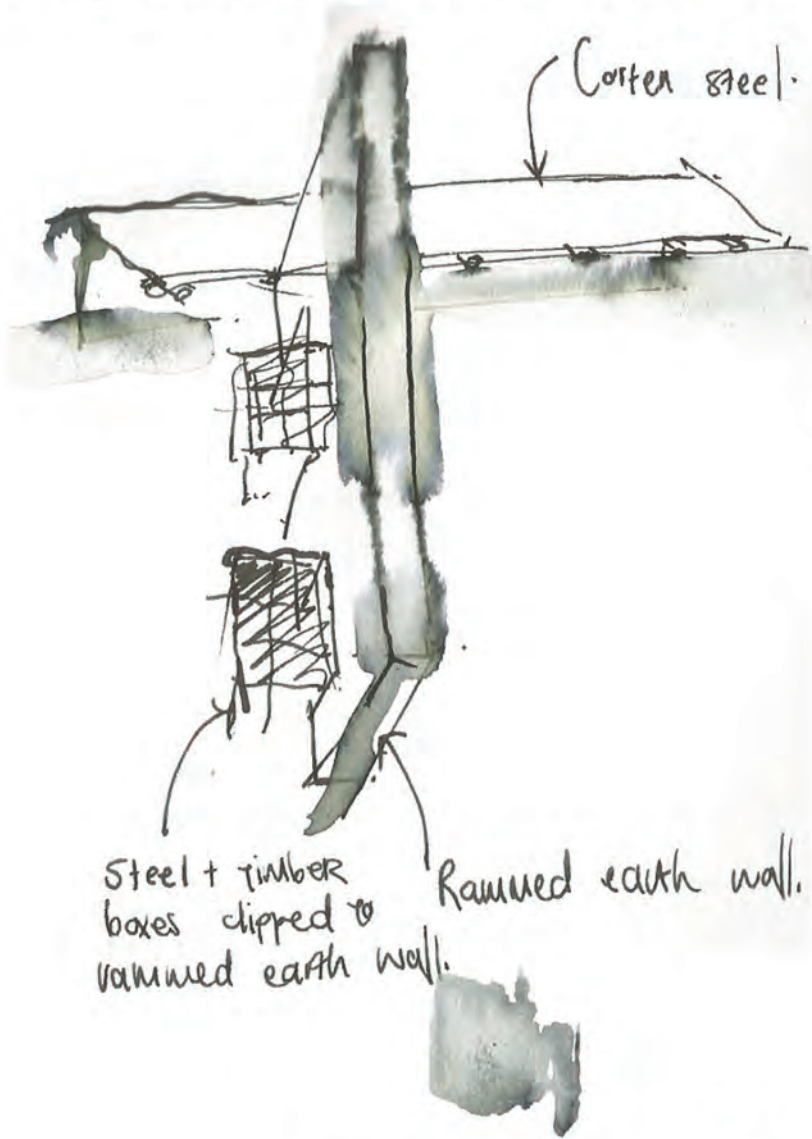 Corten steel.
Steel + timber
boxes clipped to
rammed earth wall.
Rammed earth wall.